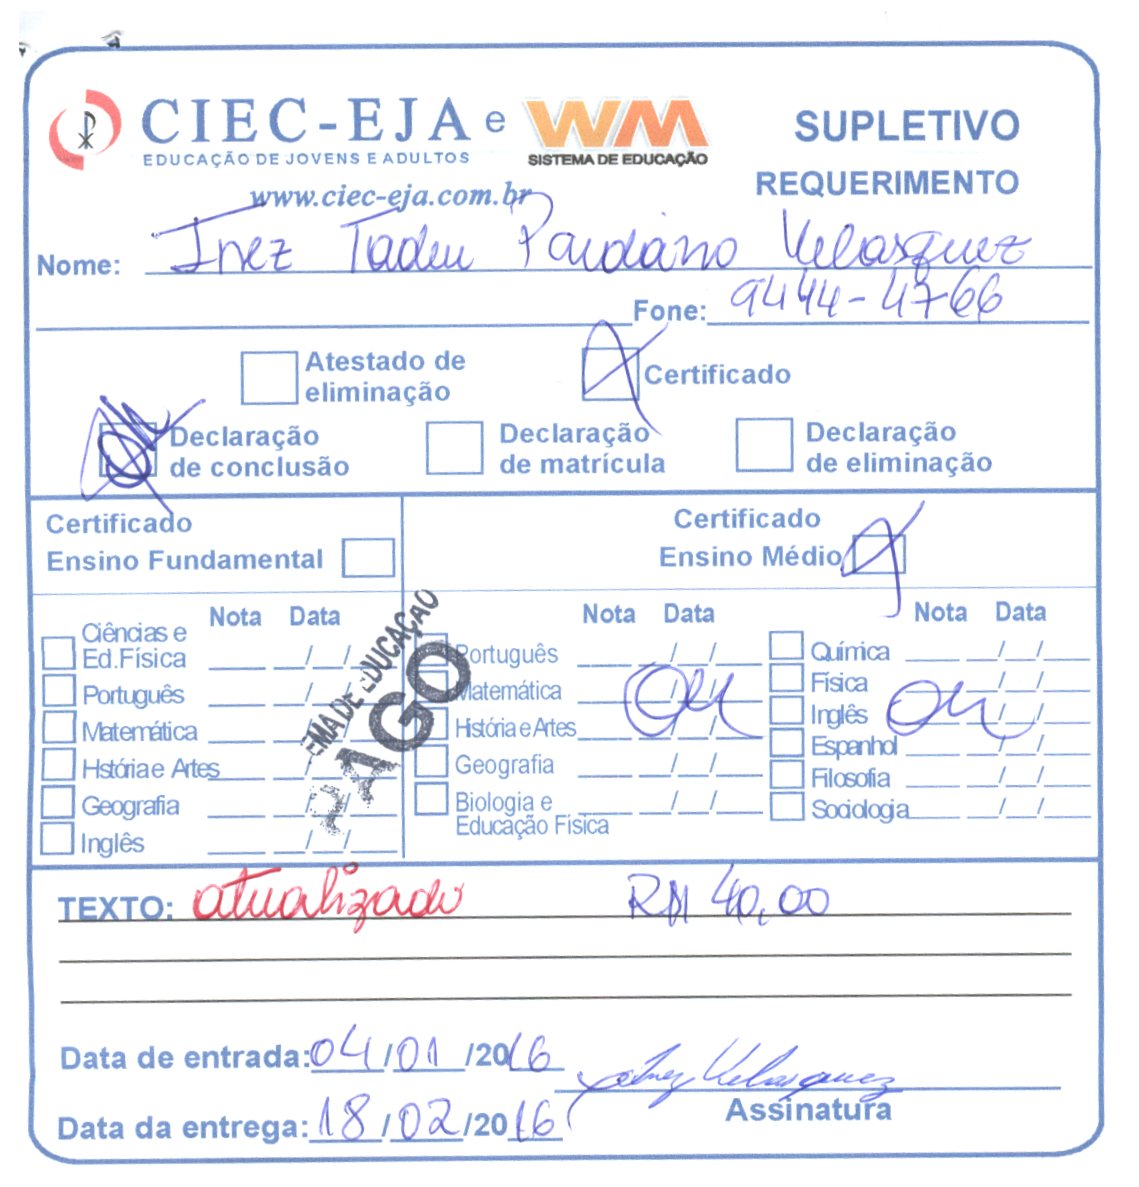 CIEC-EJA e WM
EDUCAÇÃO DE JOVENS E ADULTOS SISTEMA DE EDUCAÇÃO
www.ciec-eja.com.br
SUPLETIVO
REQUERIMENTO
Nome: Inez Tadeu Velasquez
Fone: 9444-4766
Atestado de eliminação
Certificado
Declaração de conclusão
Declaração de matrícula
Declaração de eliminação
Certificado
Ensino Fundamental
Certificado
Ensino Médio
Nota Data
Ciências e
Ed.Física / /
Português / /
Matemática / /
História e Artes / /
Geografia / /
Inglês / /
EMA DE EDUCAÇAO
PAGO
Nota Data
Português / /
Matemática / /
História e Artes / /
Geografia / /
Biologia e / /
Educação Física
Nota Data
Química / /
Física / /
Inglês / /
Espanhol / /
Filosofia / /
Sociologia / /
TEXTO: atualizado 40,00
Data de entrada: 04/01/2016
Data da entrega: 18/02/2016
Inez Velasquez
Assinatura